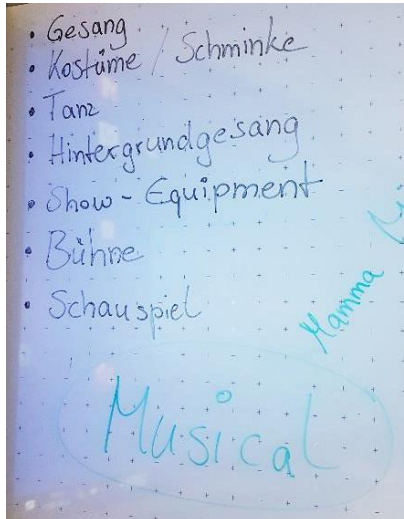 • Gesang
• Kostüme / Schminke
• Tanz
• Hintergrundgesang
• Show - Equipment
• Bühne
• Schauspiel
Mamma
Musical